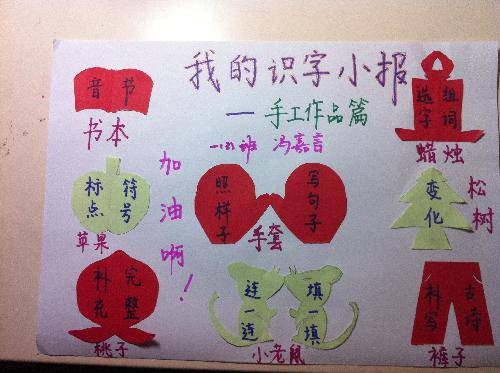 我的识字小报
—手工作品篇
一(2)班 冯嘉言
音节
书本
选字组词
蜡烛
标点符号
苹果
加油啊！
照样子写句子
手套
变化
松树
补充完整
桃子
连一连
填一填
小老鼠
补写古诗
裤子